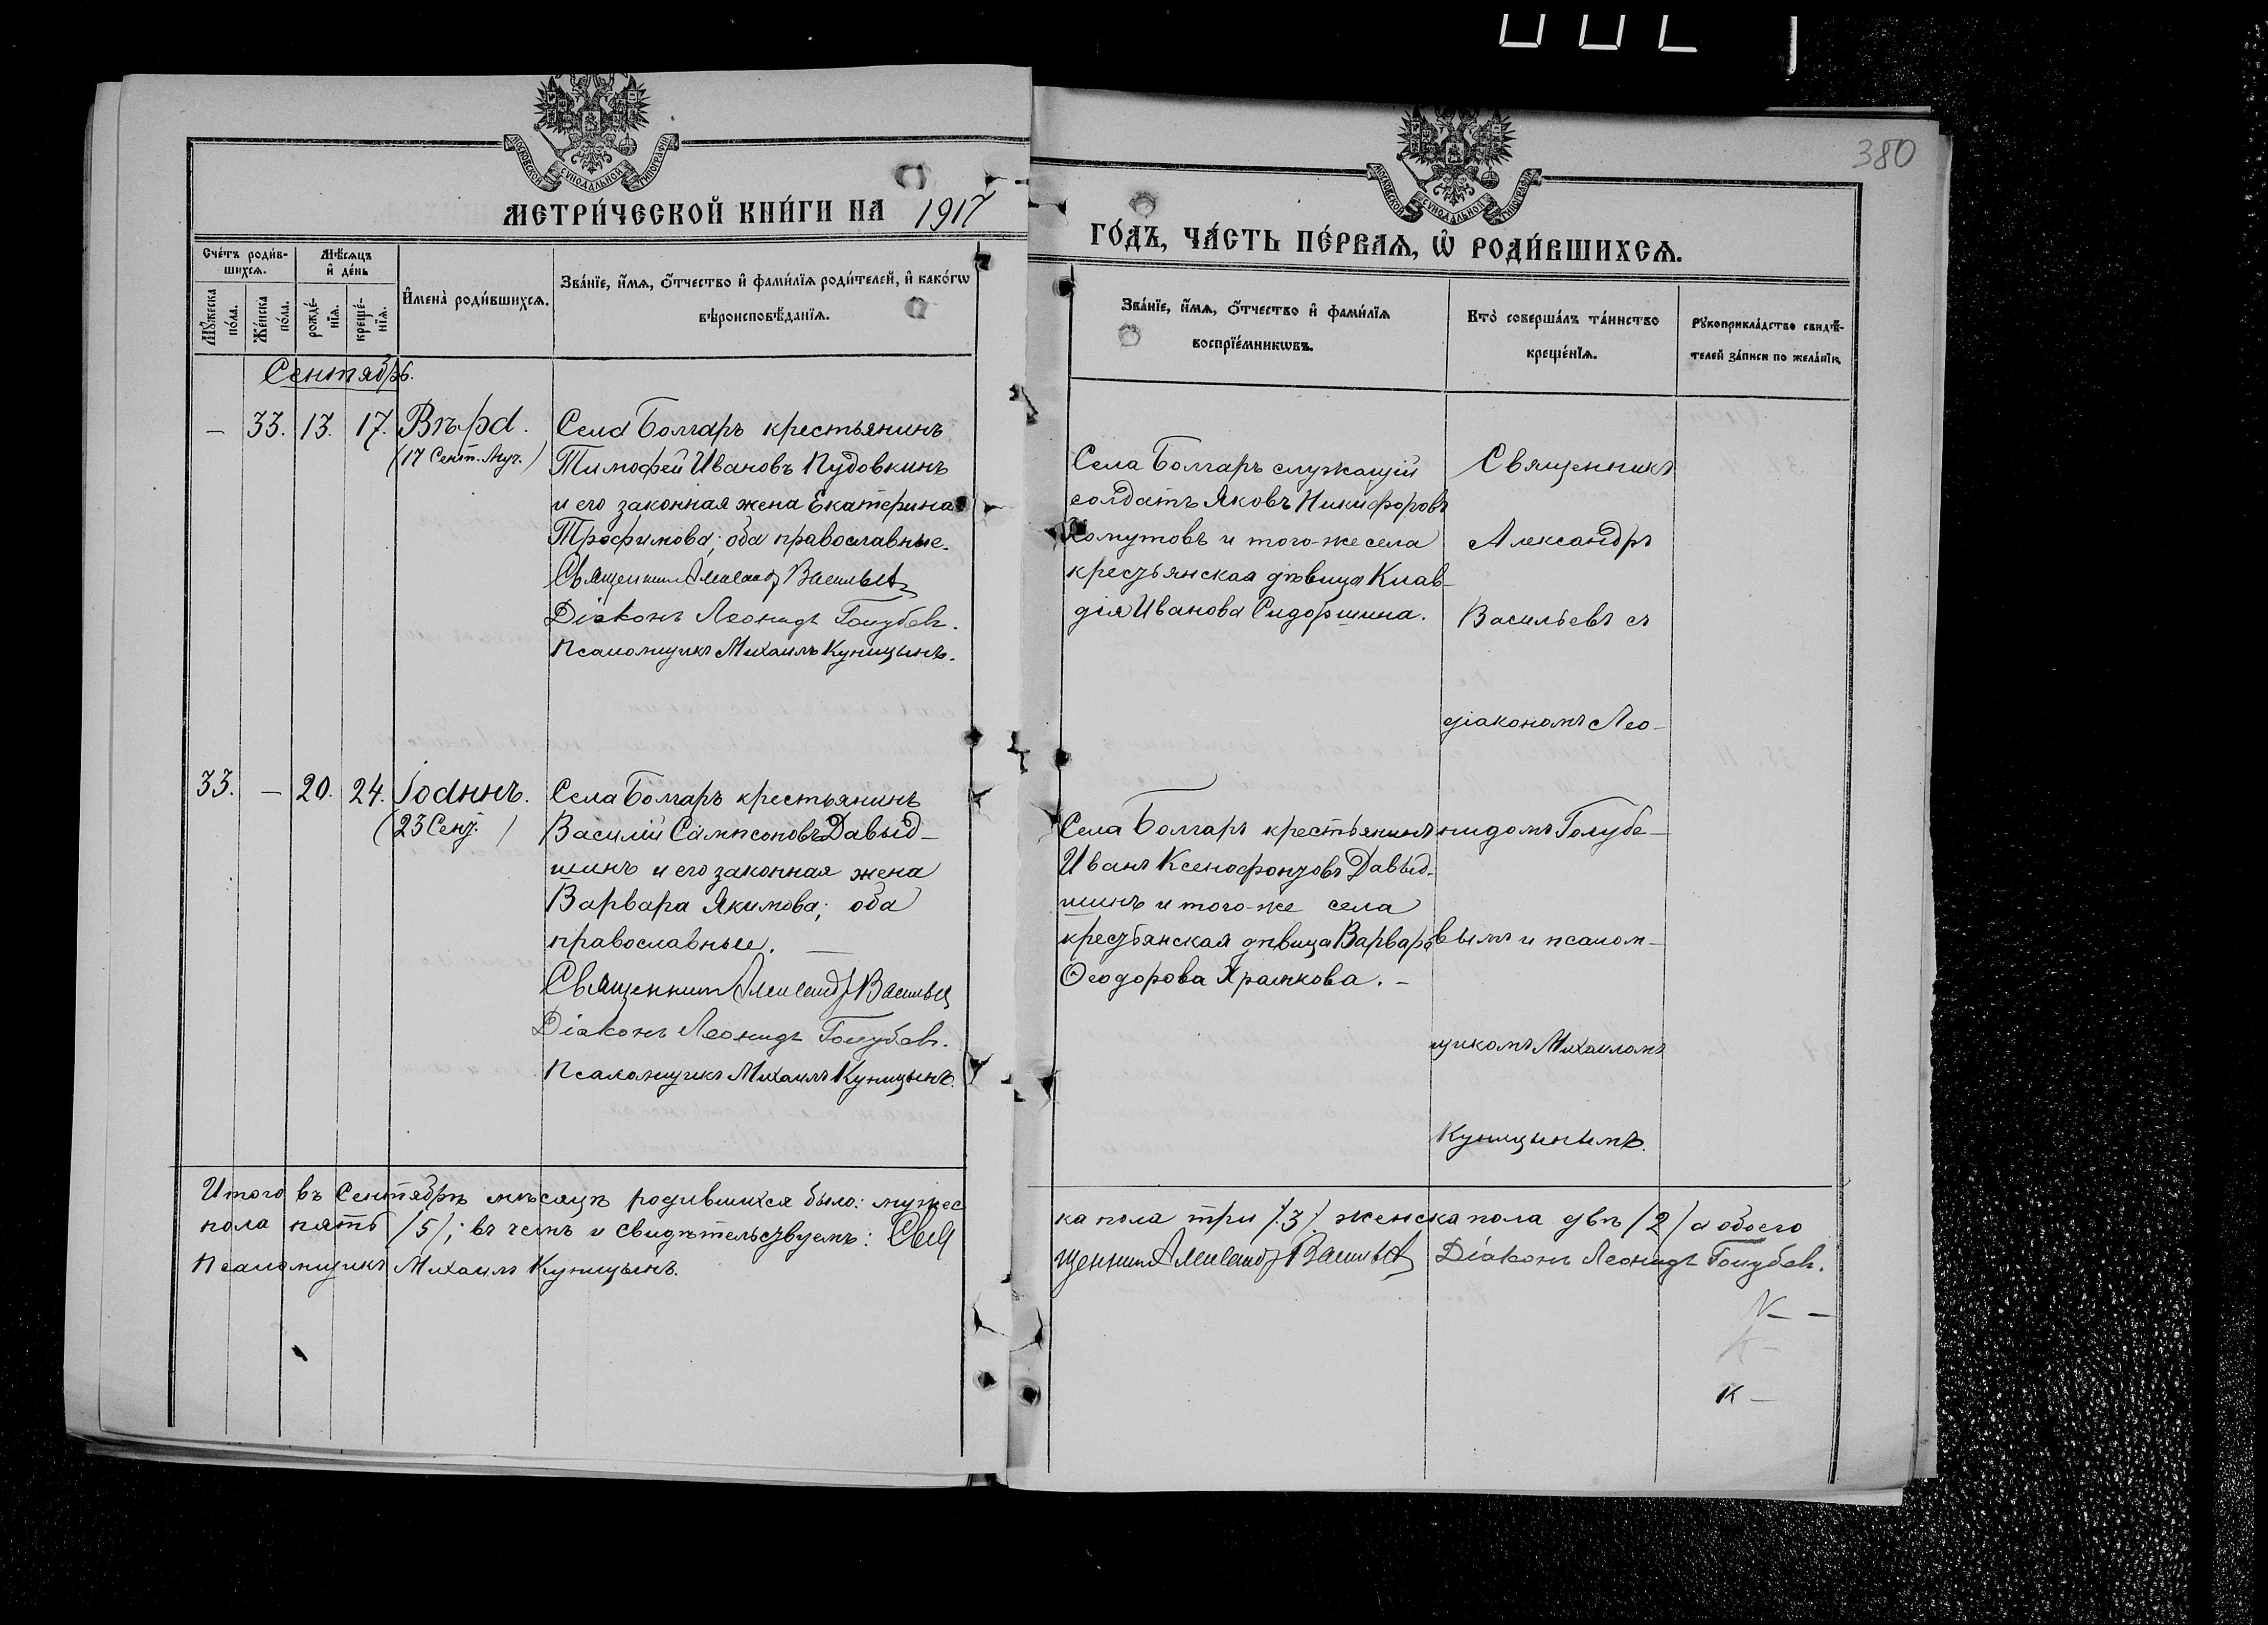 380
МОСКОВСКОЙ СѴНОДАЛЬНОЙ ТИПОГРАФІИ
МОСКОВСКОЙ СѴНОДАЛЬНОЙ ТИПОГРАФІИ
МЕТРИ́ЧЕСКОЙ КНИ́ГИ НА 1917
ГО́ДЪ, ЧА́СТЬ ПЕ́РВАѦ, Ѡ҆ РОДИ́ВШИХСѦ.
Сче́тъ роди́в-
шихсѧ.
Мѣ́сѧцъ
и҆ де́нь
Мꙋ́жеска
по́ла.
Же́нска
по́ла.
рожде́-
нїѧ.
креще́-
нїѧ.
И҆мена̀ роди́вшихсѧ.
Зва́нїе, и҆́мѧ, о҆́тчество и҆ фами́лїѧ роди́телей, и҆ како́гѡ
вѣроисповѣ́данїѧ.
Зва́нїе, и҆́мѧ, о҆́тчество и҆ фами́лїѧ
воспрїе́мникѡвъ.
Кто̀ соверша́лъ та́инство
креще́нїѧ.
Рꙋкоприкла́дство свидѣ́-
телей за́писи по жела́нїю.
Сентябрь.
— 33. 13. 17. Вѣра.
(17 Сент. Муч.)
Села Болгаръ крестьянинъ
Тимофей Ивановъ Пудовкинъ
и его законная жена Екатерина
Трофимова; оба православные.
Священникъ Александръ Васильевъ
Діаконъ Леонидъ Голубевъ.
Псаломщикъ Михаилъ Куницынъ.
Села Болгаръ служащій
солдатъ Яковъ Никифоровъ
Хомутовъ и того-же села
крестьянская дѣвица Клав-
дія Иванова Сидоршина.
Священникъ
Александръ
Васильевъ съ
діакономъ Лео-
33. — 20. 24. Іоаннъ.
(23 Сент.)
Села Болгаръ крестьянинъ
Василій Сампсоновъ Давыд-
шинъ и его законная жена
Варвара Якимова; оба
православные. —
Священникъ Александръ Васильевъ
Діаконъ Леонидъ Голубевъ.
Псаломщикъ Михаилъ Куницынъ.
Села Болгаръ крестьянинъ
Иванъ Ксенофонтовъ Давыд-
шинъ и того-же села
крестьянская дѣвица Варвара
Ѳеодорова Храмкова. —
нидомъ Голубе-
вымъ и псалом-
щикомъ Михаиломъ
Куницынымъ.
Итого въ Сентябрѣ мѣсяцѣ родившихся было: мужес
ка пола три /3/. женска пола двѣ /2/ а обоего
пола пять /5/; въ чемъ и свидѣтельствуемъ: Свя
щенникъ Александръ Васильевъ Діаконъ Леонидъ Голубевъ.
Псаломщикъ Михаилъ Куницынъ.
К —